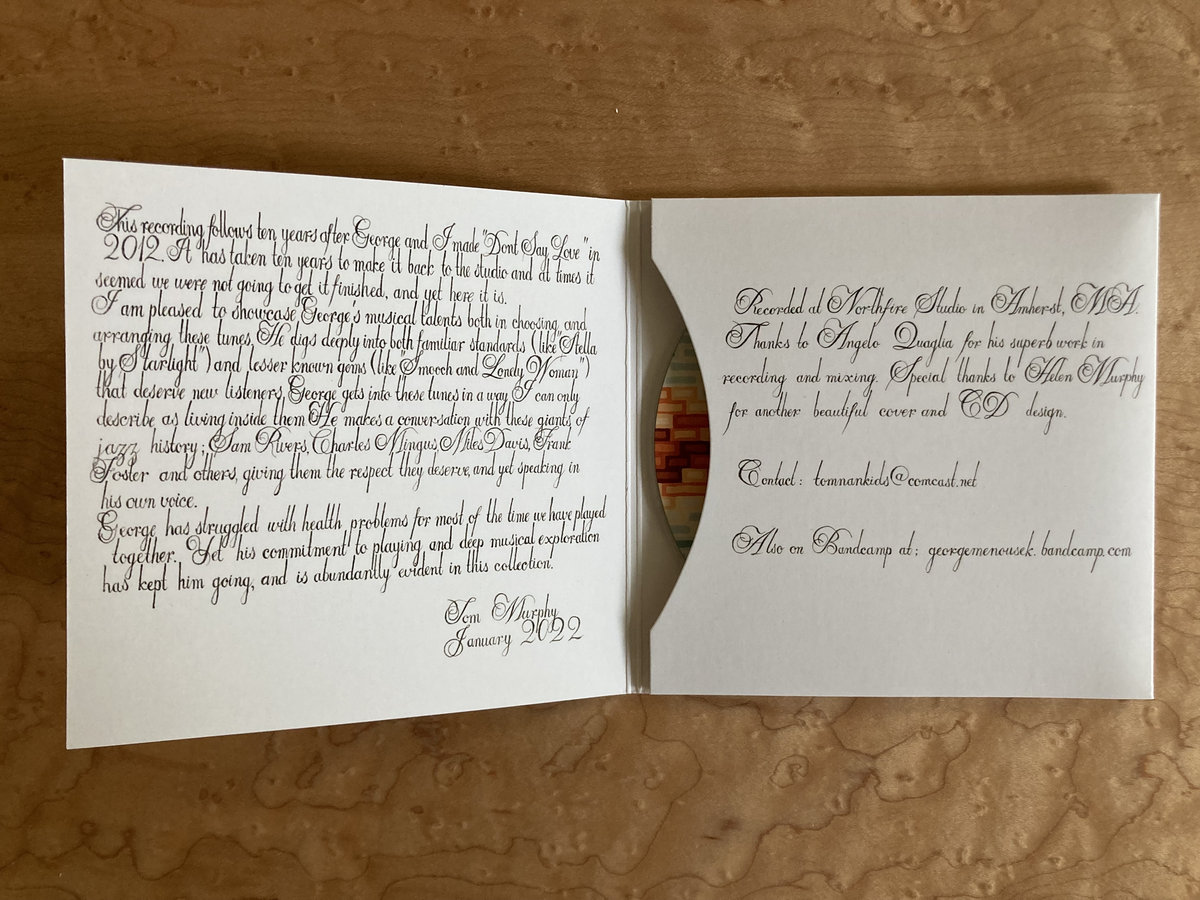 This recording follows ten years after George and I made "Dont Say Love" in
2012. It has taken ten years to make it back to the studio and at times it
seemed we were not going to get it finished, and yet here it is.
I am pleased to showcase George's musical talents both in choosing and
arranging these tunes. He digs deeply into both familiar standards (like "Stella
by Starlight") and lesser known gems (like "Smooch and Lonely Woman")
that deserve new listeners. George gets into these tunes in a way I can only
describe as living inside them. He makes a conversation with these giants of
jazz history; Sam Rivers, Charles Mingus, Miles Davis, Frank
Foster and others, giving them the respect they deserve, and yet speaking in
his own voice.
George has struggled with health problems for most of the time we have played
together. Yet his commitment to playing and deep musical exploration
has kept him going, and is abundantly evident in this collection.
Tom Murphy
January 2022
Recorded at Northfire Studio in Amherst, MA.
Thanks to Angelo Quaglia for his superb work in
recording and mixing. Special thanks to Helen Murphy
for another beautiful cover and CD design.
Contact: tomnankids@comcast.net
Also on Bandcamp at: georgemenousek.bandcamp.com